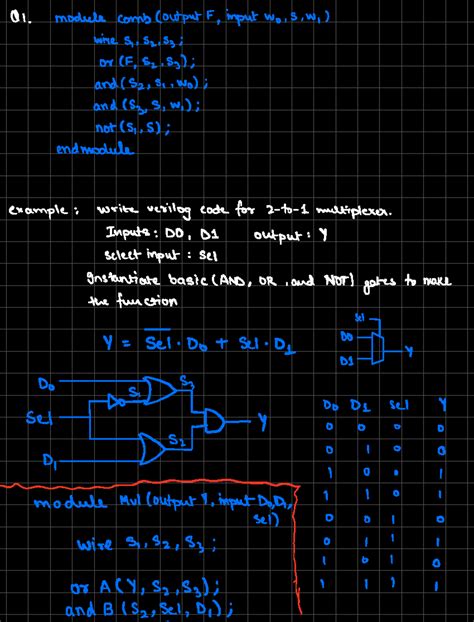 Q1. module comb (output F, input w₀, s, w₁)
wire s₁, s₂, s₃;
or (F, s₂, s₃);
and (s₂, s₁, w₀);
and (s₃, s, w₁);
not (s₁, s);
endmodule
example : write verilog code for 2-to-1 multiplexer.
Inputs : D0, D1 output : Y
select input : Sel
Instantiate basic (AND, OR, and NOT) gates to make
the function
Sel
Y = Sel̅ · D₀ + Sel · D₁
D0
D1
Y
D₀
S₁
S₃
Sel
Y
S₂
D₁
D₀ D₁ Sel Y
0 0 0 0
0 1 0 0
1 0 0 1
1 1 0 1
0 0 1 0
0 1 1 1
1 0 1 0
1 1 1 1
module Mul (output Y, input D₀, D₁,
Sel)
wire S₁, S₂, S₃;
or A (Y, S₂, S₃);
and B (S₂, Sel, D₁);